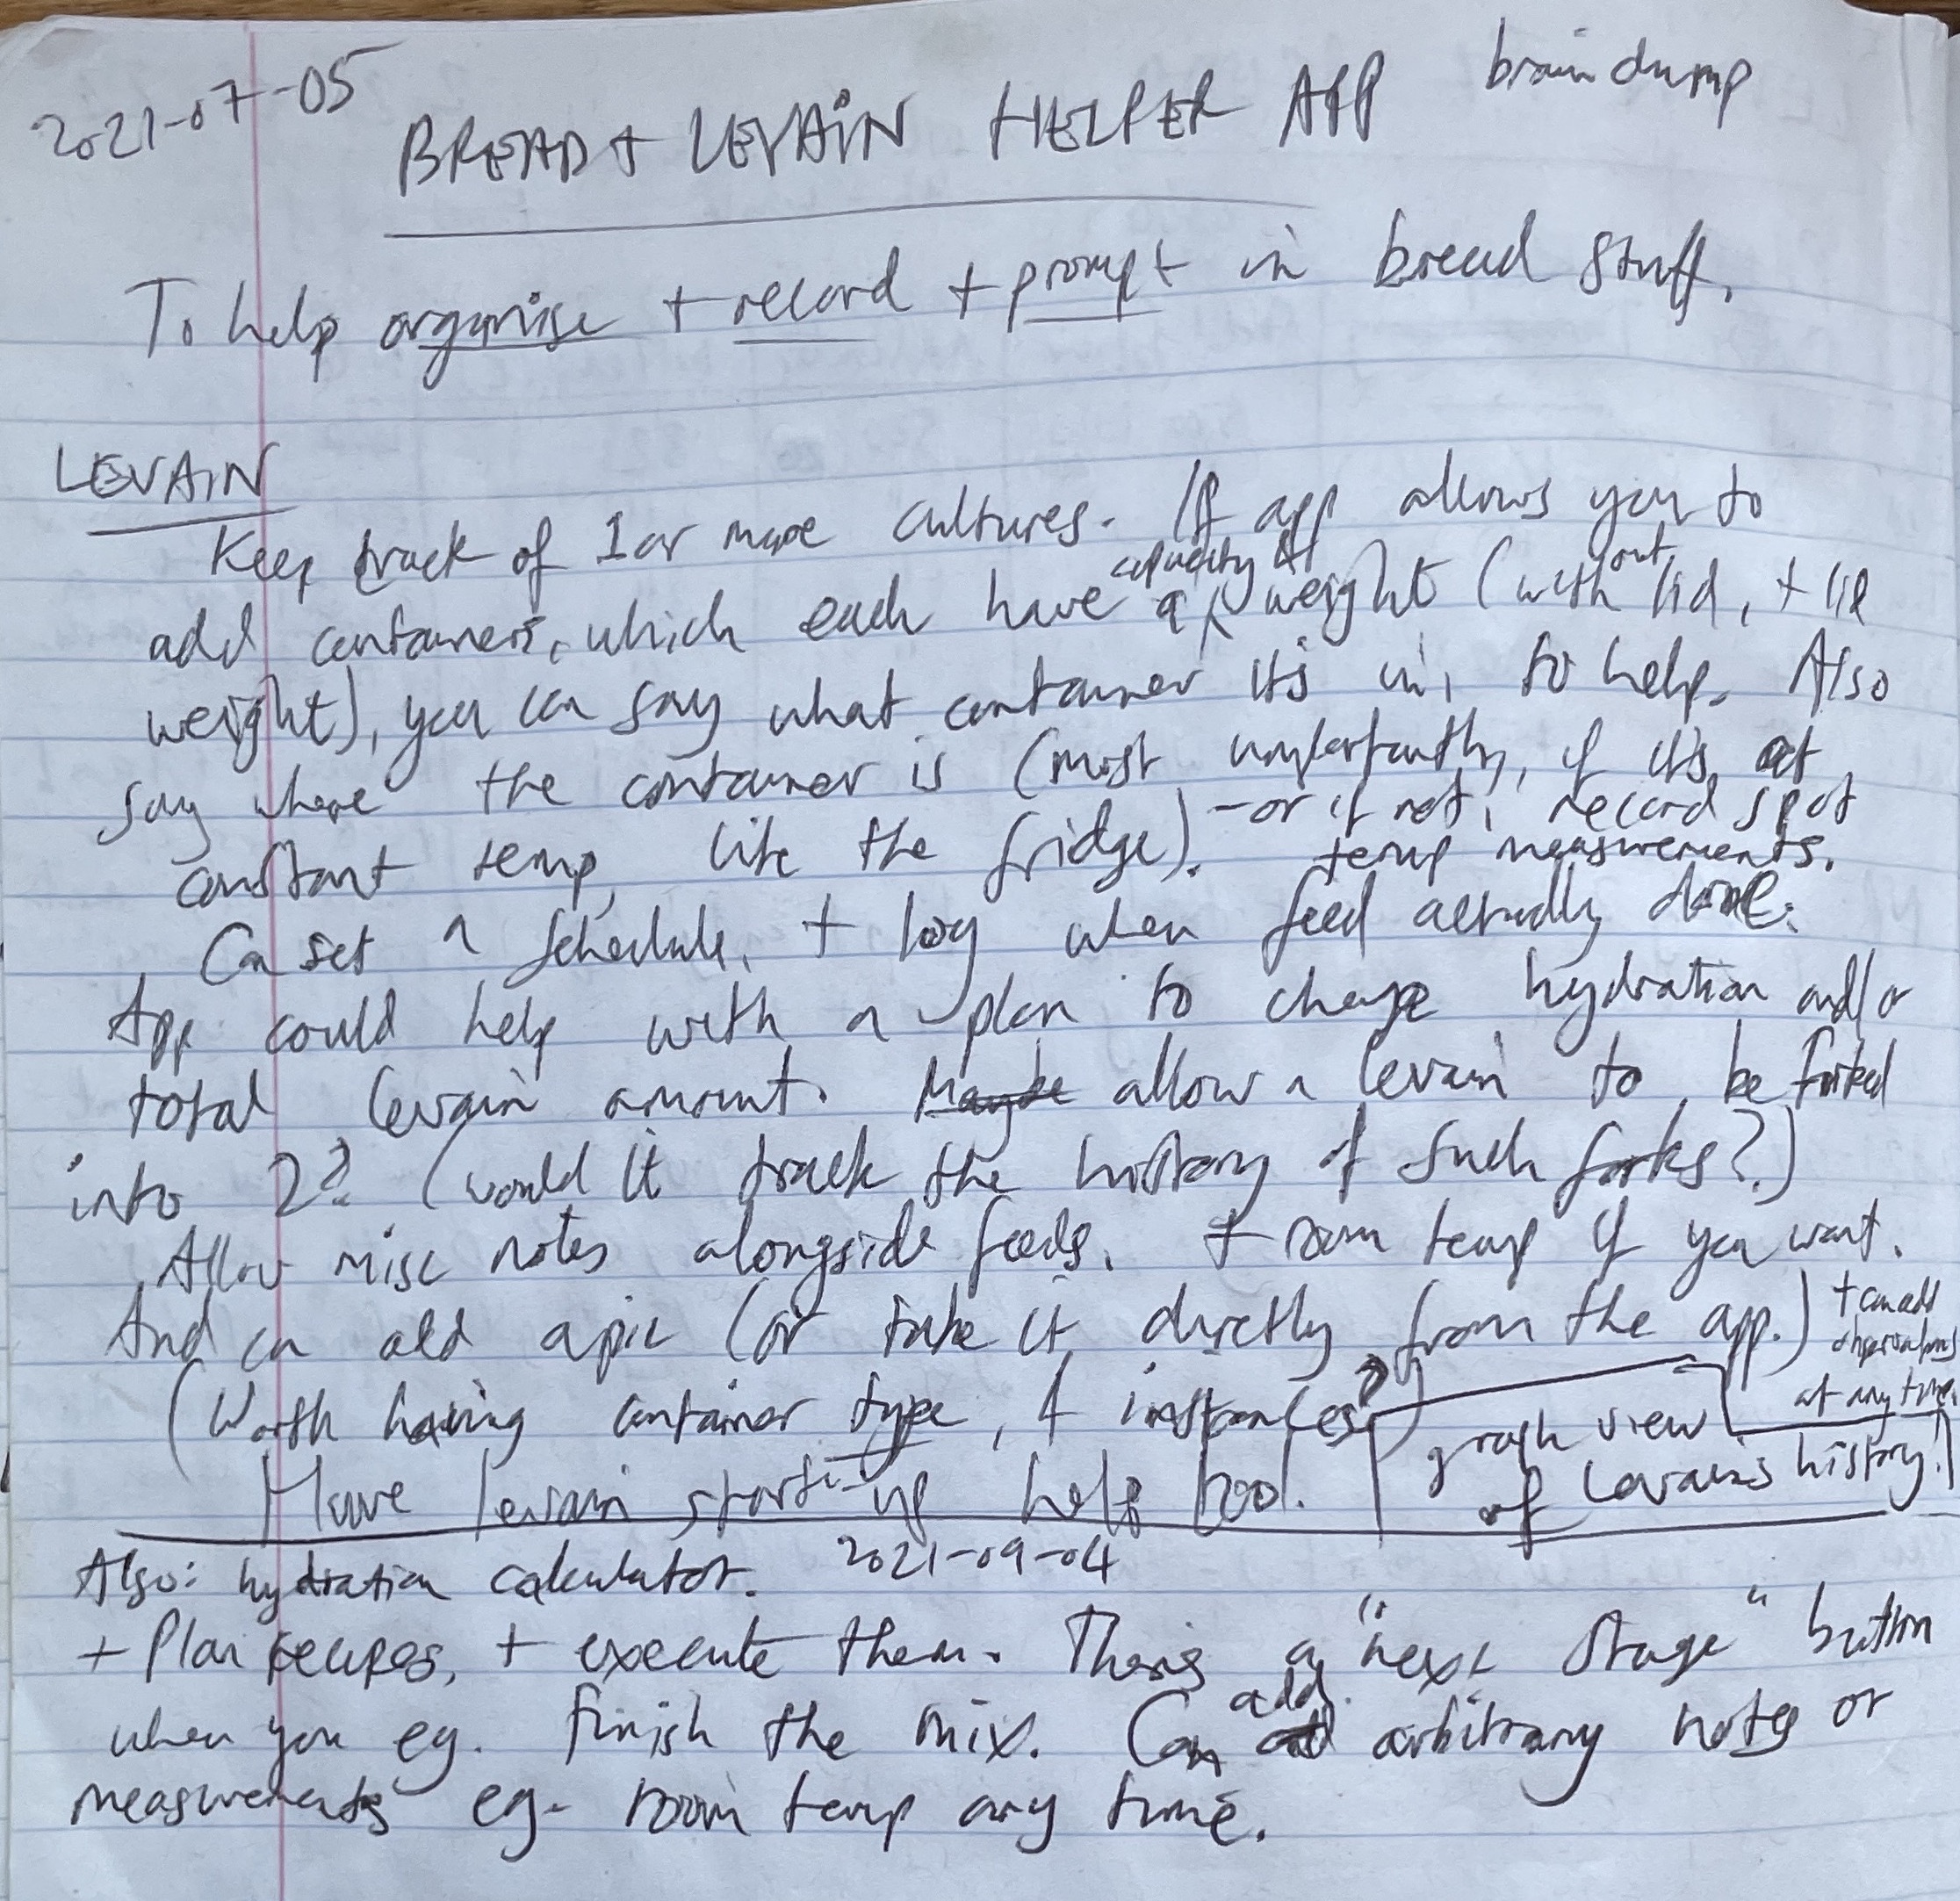 2021-07-05
BREAD + LEVAIN HELPER APP braindump
To help organise + record + prompt in bread stuff.
LEVAIN
Keep track of 1 or more cultures. If app allows you to
add containers, which each have a capacity & weight (without lid, + lid
weight), you can say what container it's in, to help. Also
say where the container is (most importantly, if it's at
constant temp, like the fridge). - or if not, record spot
temp measurements.
Can set a schedule, + log when feed actually done.
App could help with a plan to change hydration and/or
total levain amount. Maybe allow a levain to be forked
into 2? (would it track the history of such forks?)
Allow misc notes alongside feeds. + room temp if you want.
And can add a pic (or take it directly from the app.) + can add
observations
at any time
(Worth having container type, & instances?)
Have levain start-up help too!
graph view
of levain's history!
Also: hydration calculator. 2021-09-04
+ Plan recipes, + execute them. There's a "next stage" button
when you eg. finish the mix. Can add arbitrary notes or
measurements eg. room temp any time.